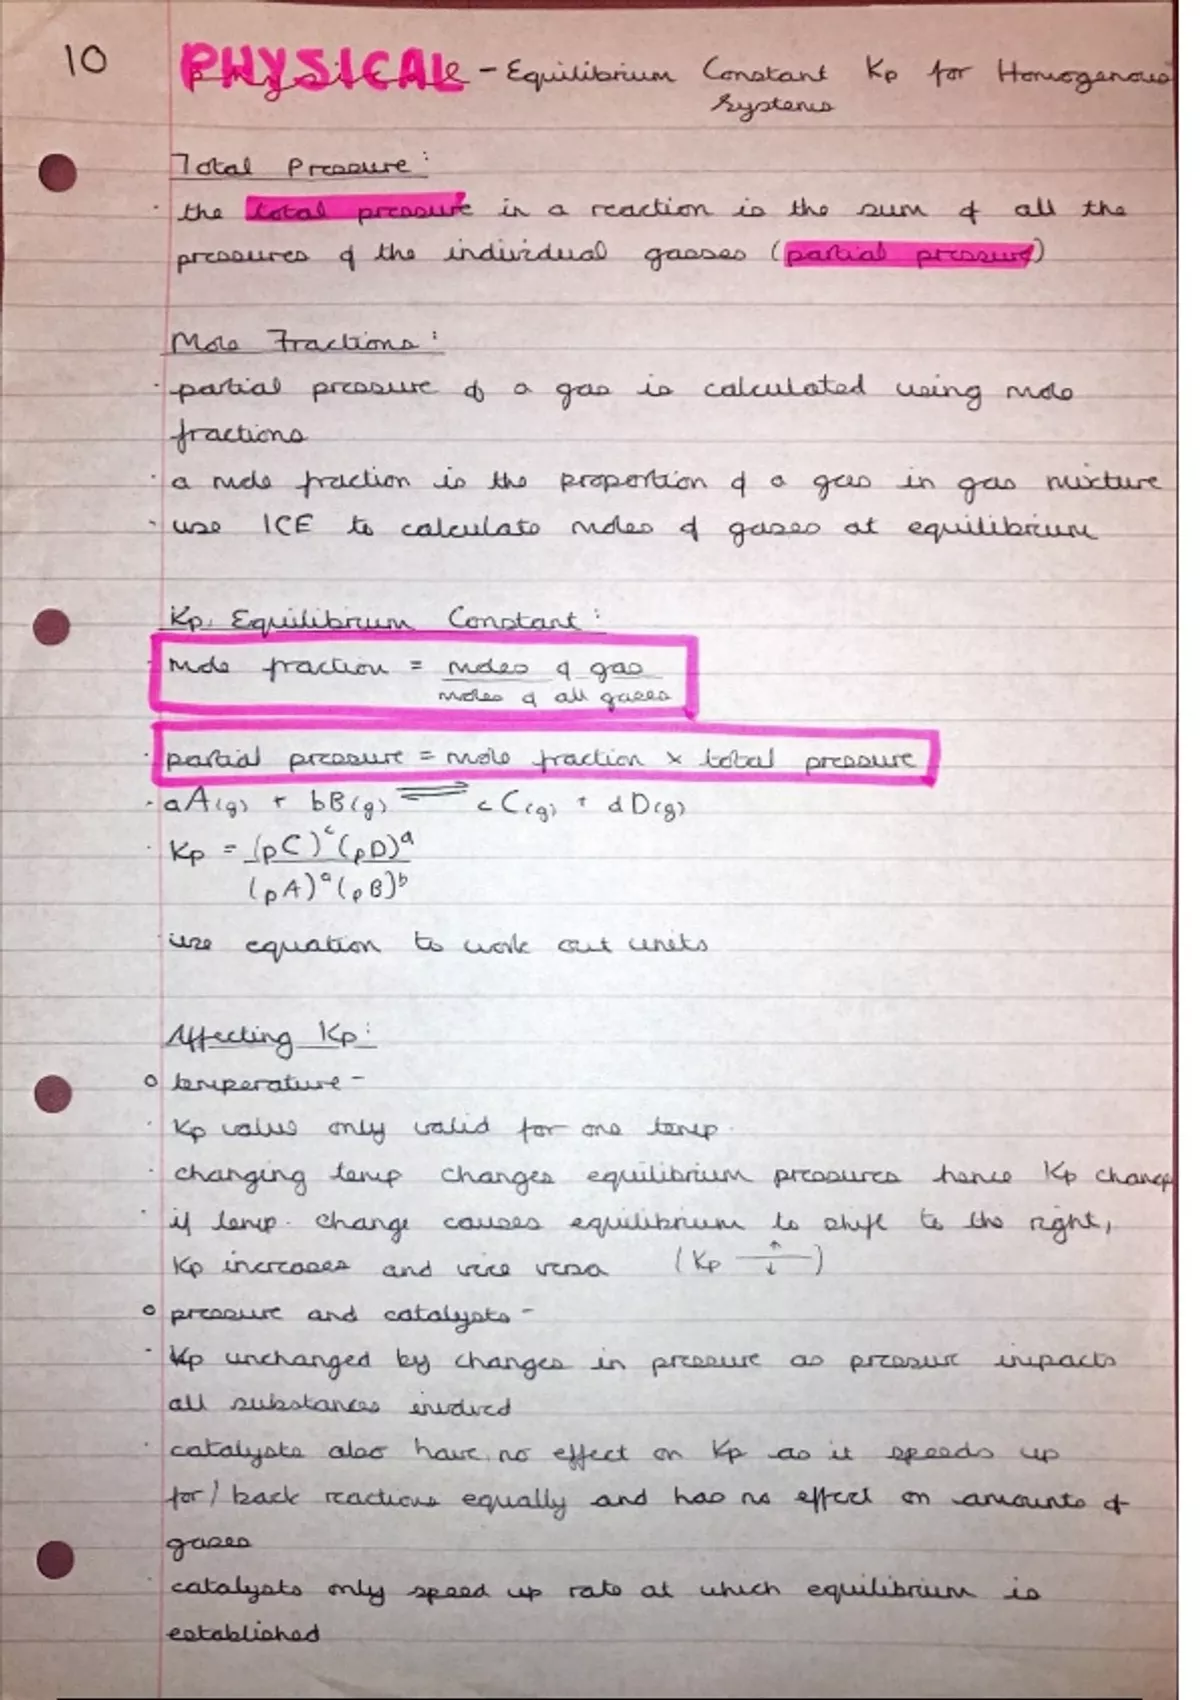 10 PHYSICAL - Equilibrium Constant Kp for Homogenous
Systems
Total Pressure:
· the total pressure in a reaction is the sum of all the
pressures of the individual gasses (partial pressure)
Mole Fractions:
· partial pressure of a gas is calculated using mole
fractions
· a mole fraction is the proportion of a gas in gas mixture
· use ICE to calculate moles of gases at equilibrium
Kp, Equilibrium Constant:
· mole fraction = moles of gas
moles of all gases
· partial pressure = mole fraction × total pressure
· aA(g) + bB(g) ⇌ cC(g) + dD(g)
· Kp = (pC)ᶜ(pD)ᵈ
(pA)ᵃ(pB)ᵇ
· use equation to work out units
Affecting Kp:
o temperature -
· Kp value only valid for one temp.
· changing temp changes equilibrium pressures hence Kp changes
· if temp. change causes equilibrium to shift to the right,
Kp increases and vice versa (Kp ↑ ↓)
o pressure and catalysts -
· Kp unchanged by changes in pressure as pressure impacts
all substances involved
· catalysts also have no effect on Kp as it speeds up
for/back reactions equally and has no effect on amounts of
gases
· catalysts only speed up rate at which equilibrium is
established